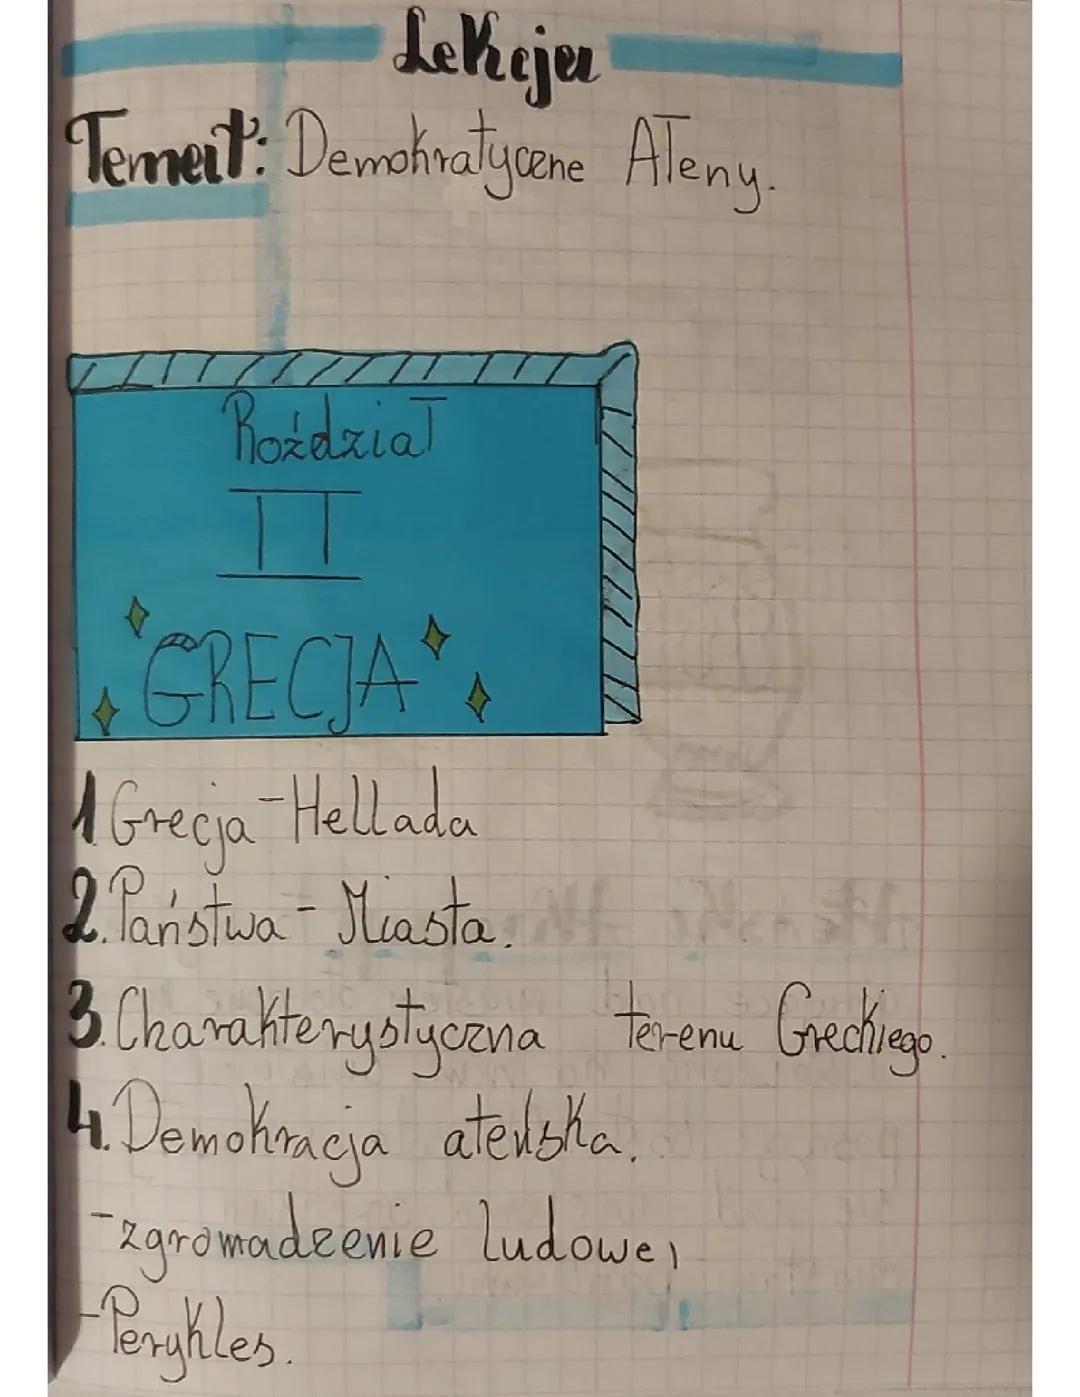 Lekcja
Temat: Demokratyczne Ateny.
Roździał
II
GRECJA
1 Grecja - Hellada
2. Państwa - Miasta.
3. Charakterystyczna terenu Greckiego.
4. Demokracja ateńska.
- zgromadzenie ludowe,
- Perykles.